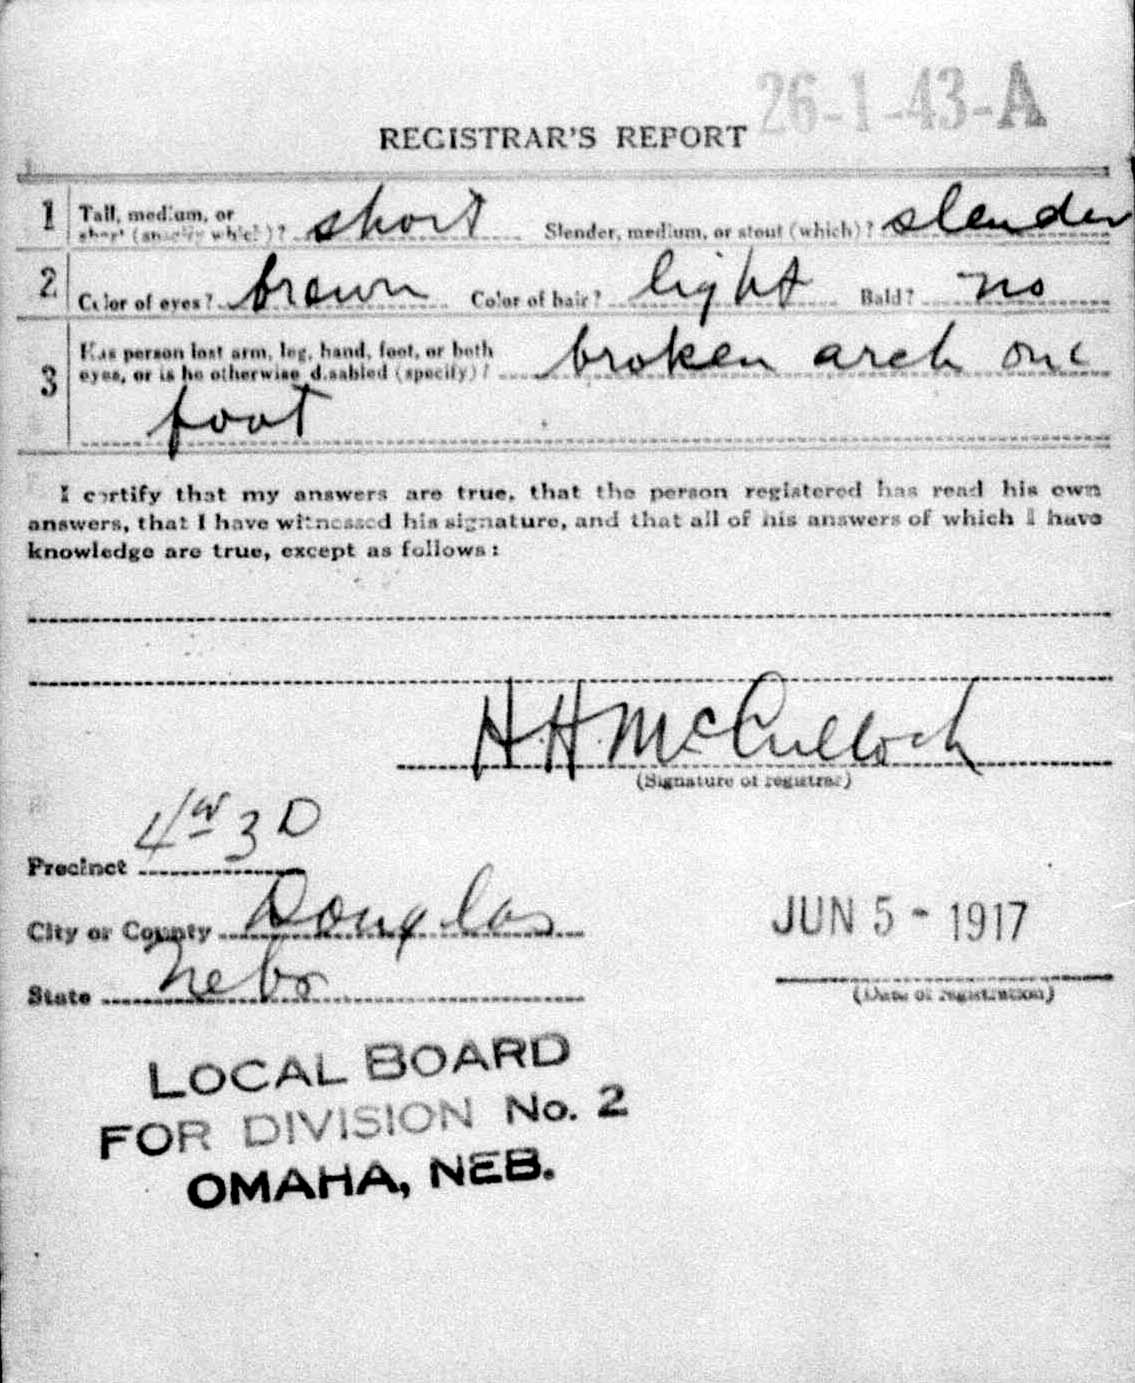 26-1-43-A
REGISTRAR'S REPORT
1 Tall, medium, or short (specify which)? short Slender, medium, or stout (which)? slender
2 Color of eyes? brown Color of hair? light Bald? no
3 Has person lost arm, leg, hand, foot, or both eyes, or is he otherwise disabled (specify)? broken arch one
foot
I certify that my answers are true, that the person registered has read his own
answers, that I have witnessed his signature, and that all of his answers of which I have
knowledge are true, except as follows:
H.H. McCulloch
(Signature of registrar)
Precinct 4w 3 D
City or County Douglas
State Nebr
JUN 5 - 1917
(Date of registration)
LOCAL BOARD
FOR DIVISION No. 2
OMAHA, NEB.